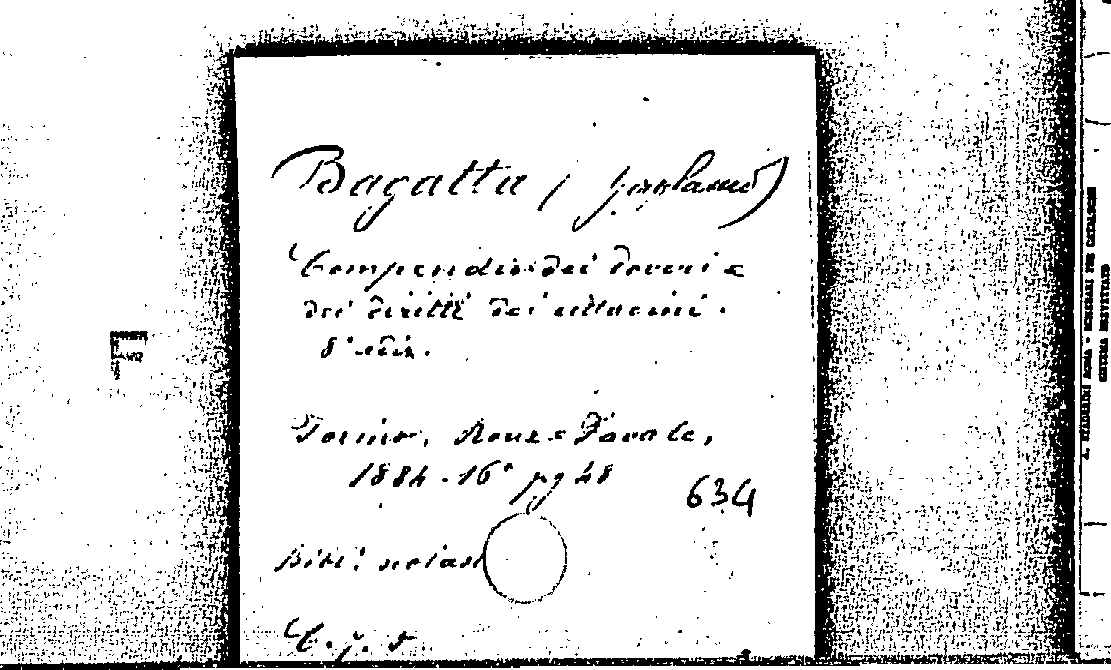 Bagatta (Gerolamo)
Compendio dei doveri e
dei diritti dei cittadini.
8ª ediz.
Torino, Roux e Favale,
1884. 16° pg 48
634
Bibl. scolast
C. j. 5